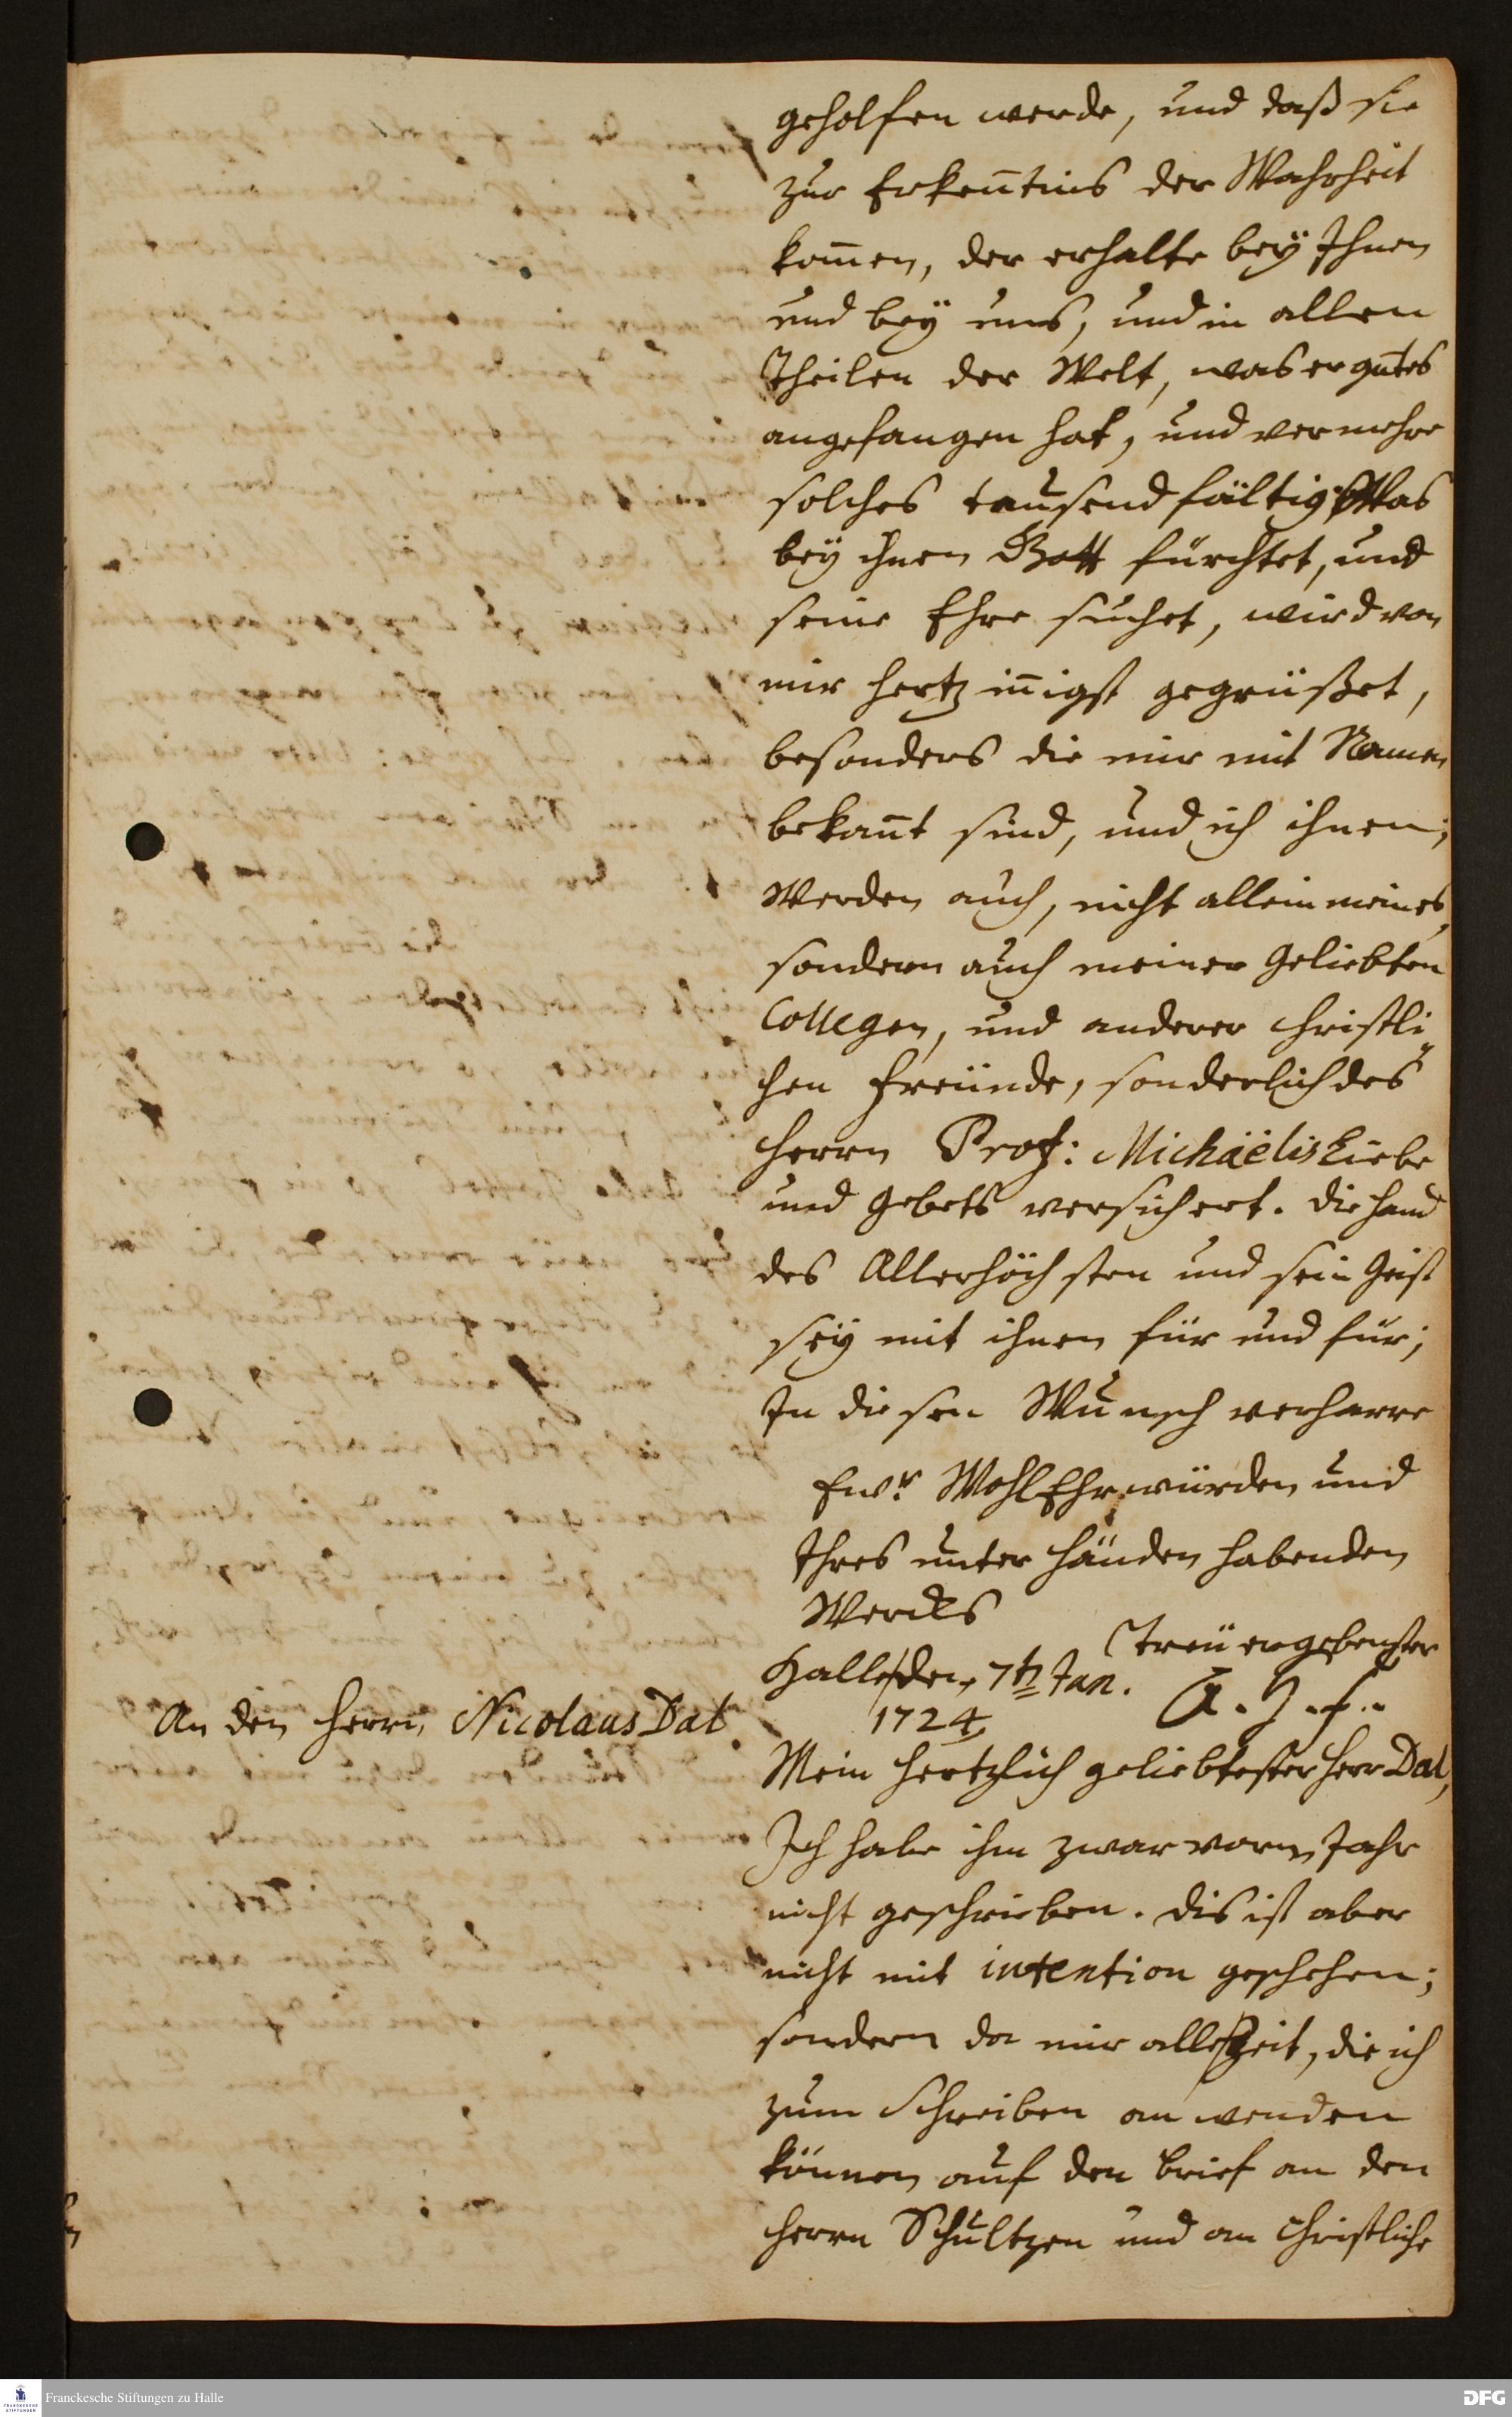 geholfen werde, und daß sie
zur Erken̄tnis der Wahrheit
kom̄en, der erhalte beÿ Ihnen
und beÿ uns, und in allen
Theilen der Welt, was er gutes
angefangen hat, und vermehre
solches tausendfältig. Was
beÿ ihnen Gott fürchtet, und
seine Ehre suchet, wird von
mir hertzin̄igst gegrüßet,
besonders die mir mit Namen
bekan̄t sind, und ich ihnen;
Werden auch, nicht allein meines,
sondern auch meiner geliebten
Collegen, und anderer christli
chen Freünde, sonderlich des
Herrn Prof: Michaëlis Liebe
und Gebets versichert. Die Hand
des Allerhöchsten und sein Geist
seÿ mit ihnen für und für;
In diesen Wunsch verharre
Ewr. WohlEhrwürden und
Ihres unter Händen habenden
Werckes
Treü ergebenster
Halle, den 7t Jan.
1724
A. H. F.
An den Herrn Nicolaus Dal.
Mein hertzlich geliebtester Herr Dal,
Ich habe ihm zwar vorm Jahr
nicht geschrieben. Dis ist aber
nicht mit intention geschehen;
sondern da mir alle Zeit, die ich
zum Schreiben anwenden
können auf den Brief an den
Herrn Schultzen und an Christliche
Franckesche Stiftungen zu Halle
DFG